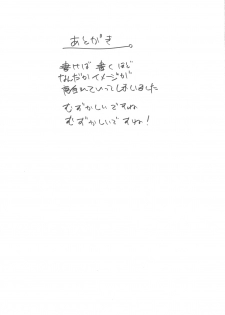 あとがき。
書けば書くほど
なんだかイメージが
離れていってしまいました
むずかしいですね
むずかしいですね!